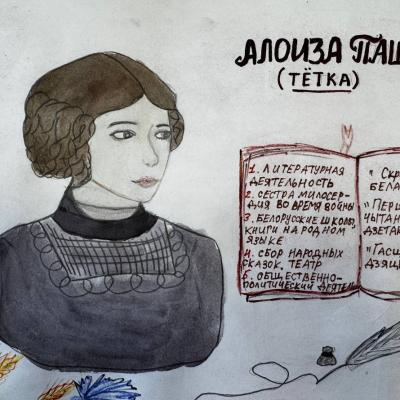 АЛОИЗА ПАШ
(ТЁТКА)
1. ЛИТЕРАТУРНАЯ
ДЕЯТЕЛЬНОСТЬ
2. СЕСТРА МИЛОСЕР-
ДИЯ ВО ВРЕМЯ ВОЙНЫ
3. БЕЛОРУССКИЕ ШКОЛЫ,
КНИГИ НА РОДНОМ
ЯЗЫКЕ
4. СБОР НАРОДНЫХ
СКАЗОК, ТЕАТР
5. ОБЩЕСТВЕННО-
ПОЛИТИЧЕСКИЙ ДЕЯТЕЛЬ
"СКР
БЕЛА
"ПЕРШ
ЧЫТАН
ДЗЕТАК
"ГАСЦ
ДЗЯЦ